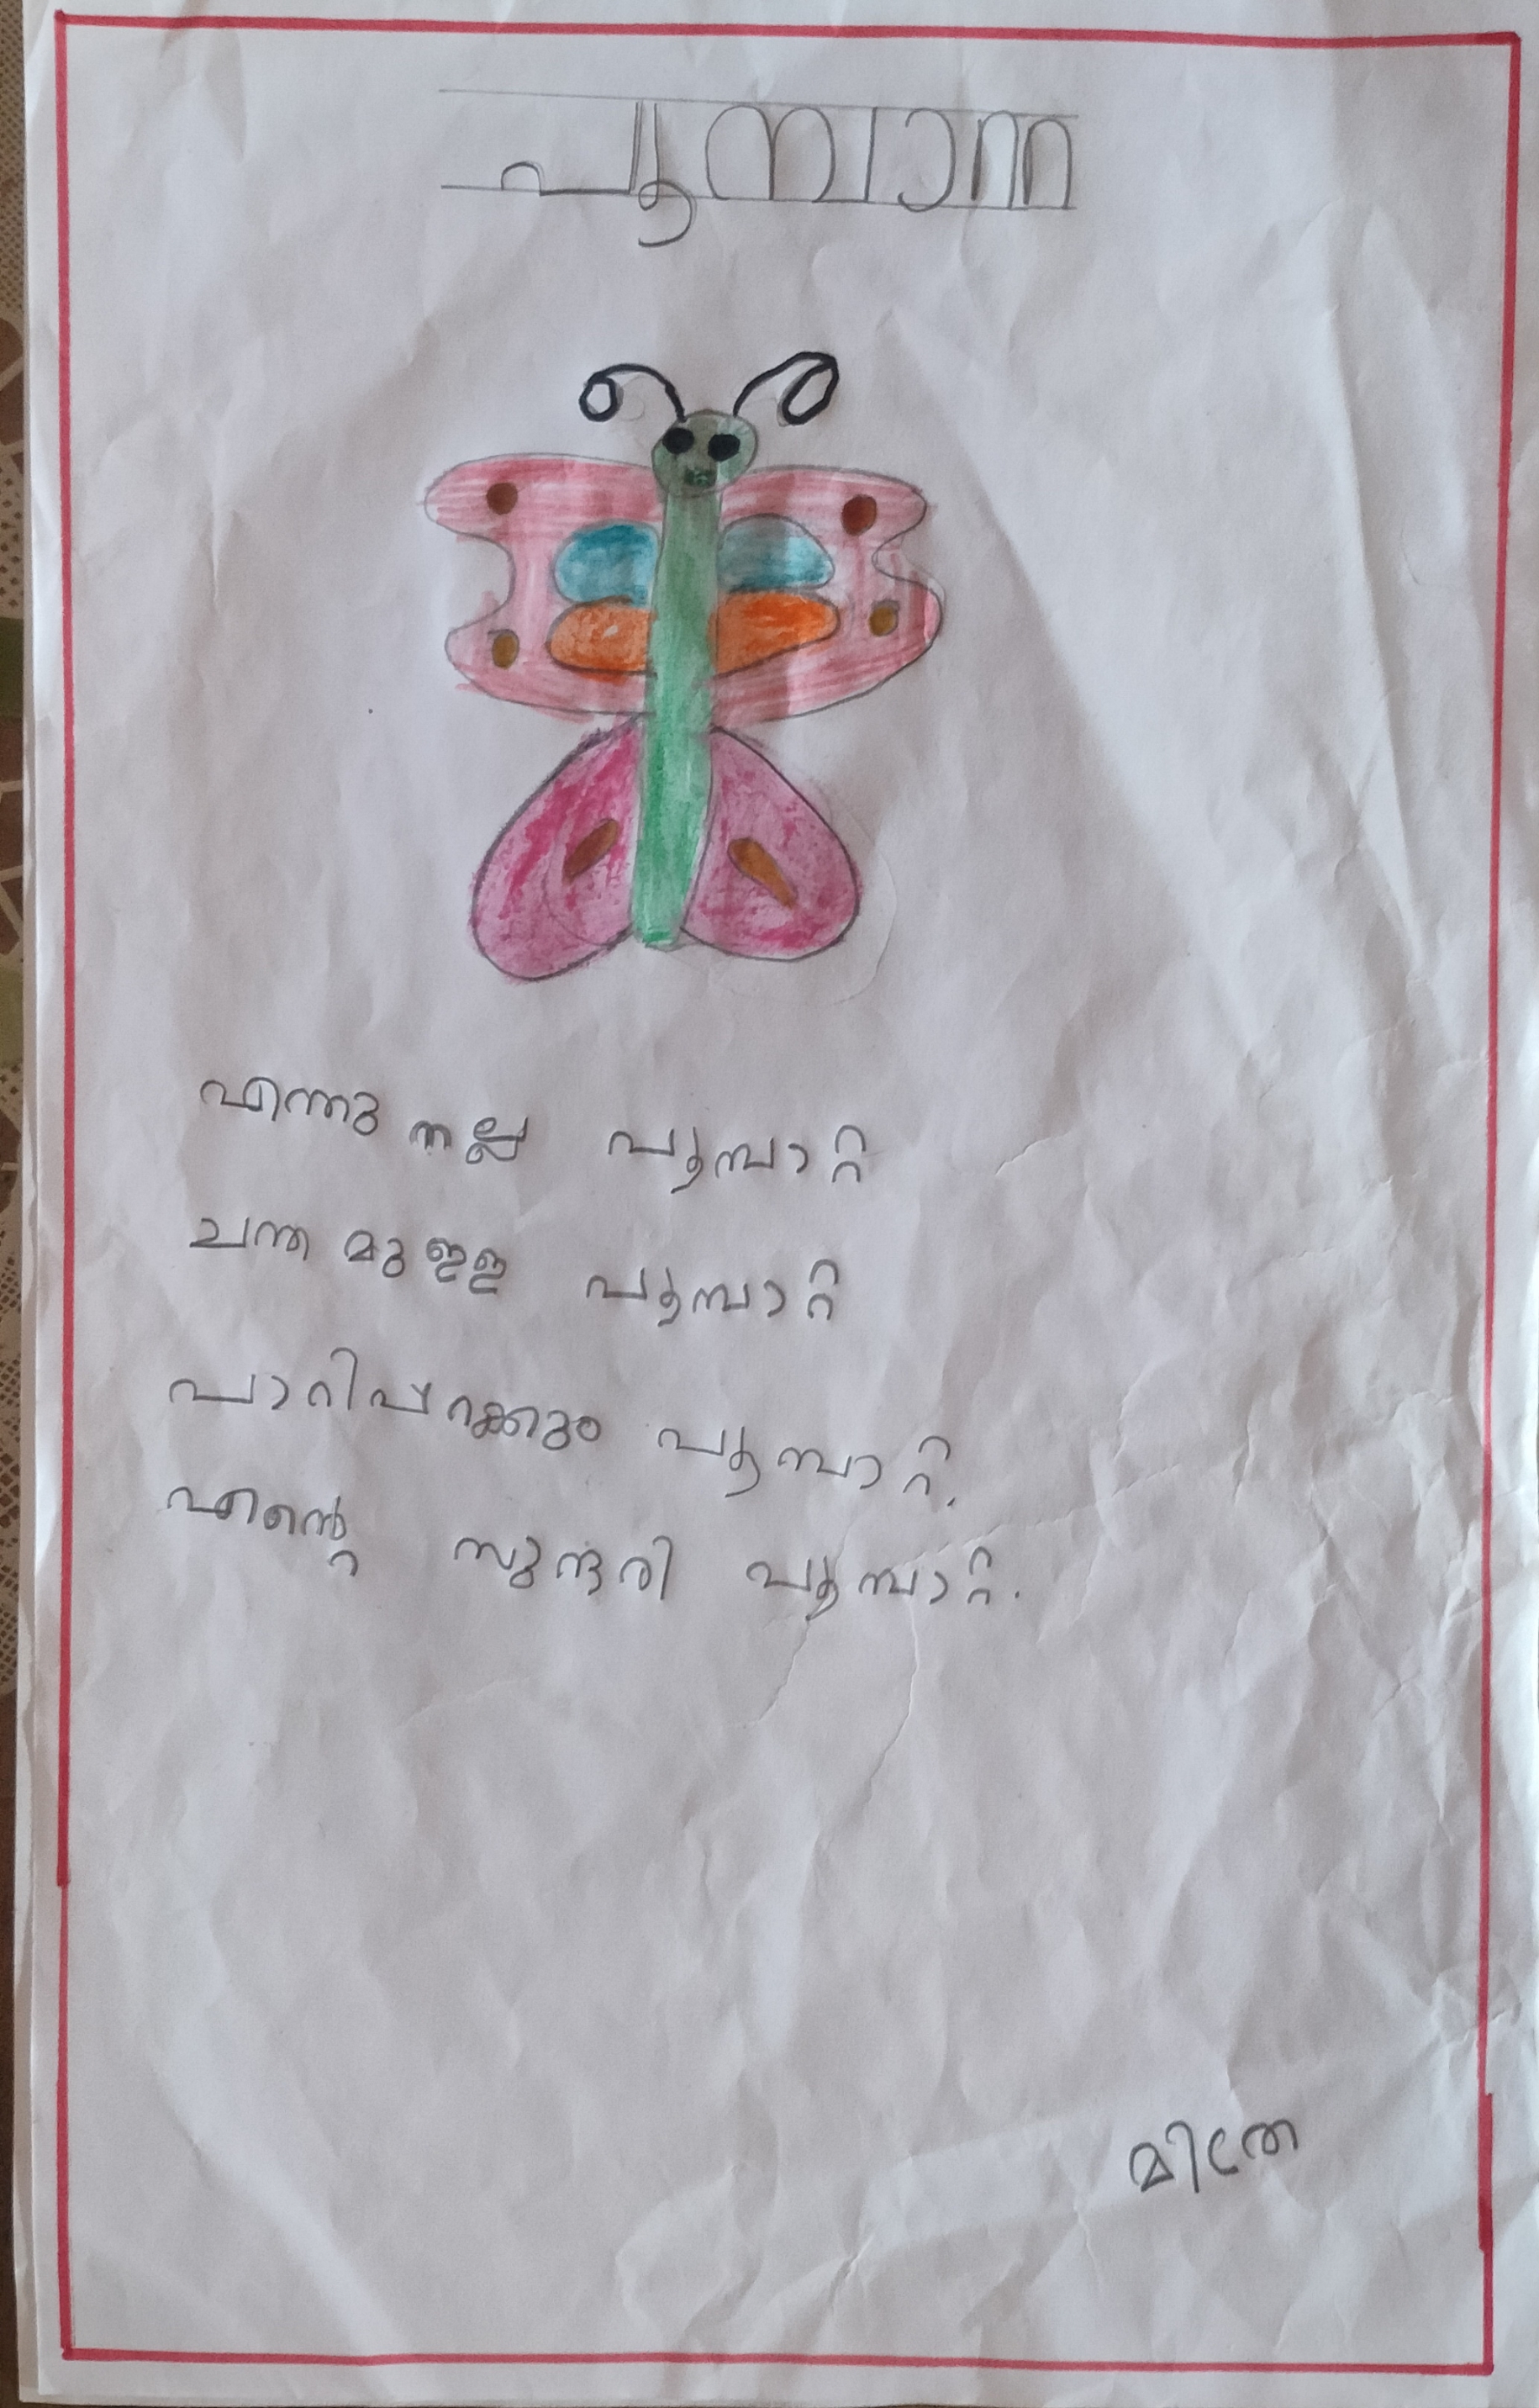 പൂമ്പാറ്റ
എന്തു നല്ല പൂമ്പാറ്റ
ചന്തമുള്ള പൂമ്പാറ്റ
പാറിപ്പറക്കും പൂമ്പാറ്റ.
എന്റെ സുന്ദരി പൂമ്പാറ്റ.